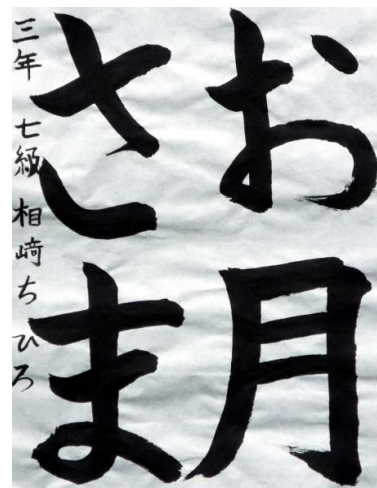 お月
さま
三年 七級 相﨑ちひろ